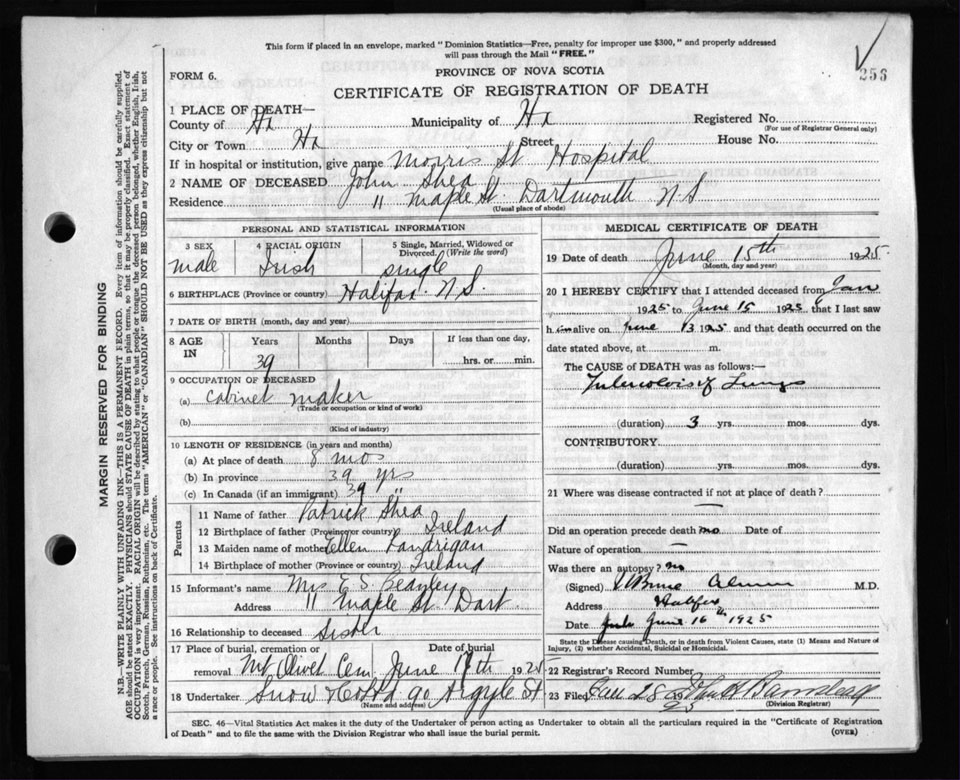 This form if placed in an envelope, marked "Dominion Statistics—Free, penalty for improper use $300," and properly addressed
will pass through the Mail "FREE."
256
FORM 6.
PROVINCE OF NOVA SCOTIA
CERTIFICATE OF REGISTRATION OF DEATH
1 PLACE OF DEATH—
County of Hx Municipality of Hx Registered No.
(For use of Registrar General only)
City or Town Hx Street House No.
If in hospital or institution, give name Morris St Hospital
2 NAME OF DECEASED John Shea
Residence 11 Maple St Dartmouth N S
(Usual place of abode)
PERSONAL AND STATISTICAL INFORMATION
3 SEX 4 RACIAL ORIGIN 5 Single, Married, Widowed or
Divorced. (Write the word)
male Irish single
6 BIRTHPLACE (Province or country) Halifax N.S.
7 DATE OF BIRTH (month, day and year)
8 AGE IN Years Months Days If less than one day,
39 hrs. or min.
9 OCCUPATION OF DECEASED
(a) Cabinet maker
(Trade or occupation or kind of work)
(b)
(Kind of industry)
10 LENGTH OF RESIDENCE (in years and months)
(a) At place of death 8 mos
(b) In province 39 yrs
(c) In Canada (if an immigrant) 39 "
Parents
11 Name of father Patrick Shea
12 Birthplace of father (Province or country) Ireland
13 Maiden name of mother Ellen Landrigan
14 Birthplace of mother (Province or country) Ireland
15 Informant's name Mrs E. S. Beanley
Address 11 Maple St. Dart.
16 Relationship to deceased Sister
17 Place of burial, cremation or removal Date of burial
Mt Olivet Cem June 17th 1925
18 Undertaker Snow & Co Ltd 90 Argyle St
(Name and address)
MEDICAL CERTIFICATE OF DEATH
19 Date of death June 15th 1925
(Month, day and year)
20 I HEREBY CERTIFY that I attended deceased from Jan
1925 to June 15 1925 that I last saw
him alive on June 13 1925 and that death occurred on the
date stated above, at m.
The CAUSE OF DEATH was as follows:—
Tuberculosis of Lungs
(duration) 3 yrs. mos. dys.
CONTRIBUTORY
(duration) yrs. mos. dys.
21 Where was disease contracted if not at place of death?
—
Did an operation precede death no Date of
Nature of operation —
Was there an autopsy? no
(Signed) M.D.
Address Halifax
Date June 16th 1925
State the Disease causing Death, or in death from Violent Causes, state (1) Means and Nature of
Injury, (2) whether Accidental, Suicidal or Homicidal.
22 Registrar's Record Number
23 Filed 19
(Division Registrar)
SEC. 46—Vital Statistics Act makes it the duty of the Undertaker or person acting as Undertaker to obtain all the particulars required in the "Certificate of Registration
of Death" and to file the same with the Division Registrar who shall issue the burial permit.
(OVER)
MARGIN RESERVED FOR BINDING
N.B.—WRITE PLAINLY WITH UNFADING INK—THIS IS A PERMANENT RECORD. Every item of information should be carefully supplied.
AGE should be stated EXACTLY. PHYSICIANS should STATE CAUSE OF DEATH in plain terms, so that it may be properly classified. Exact statement of
OCCUPATION is very important. RACIAL ORIGIN will be described by stating to what people or tongue the deceased person belonged, whether English, Irish,
Scotch, French, German, Russian, Ruthenian, etc. The terms "AMERICAN" or "CANADIAN" SHOULD NOT BE USED as they express citizenship but not
a race or people. See instructions on back of Certificate.